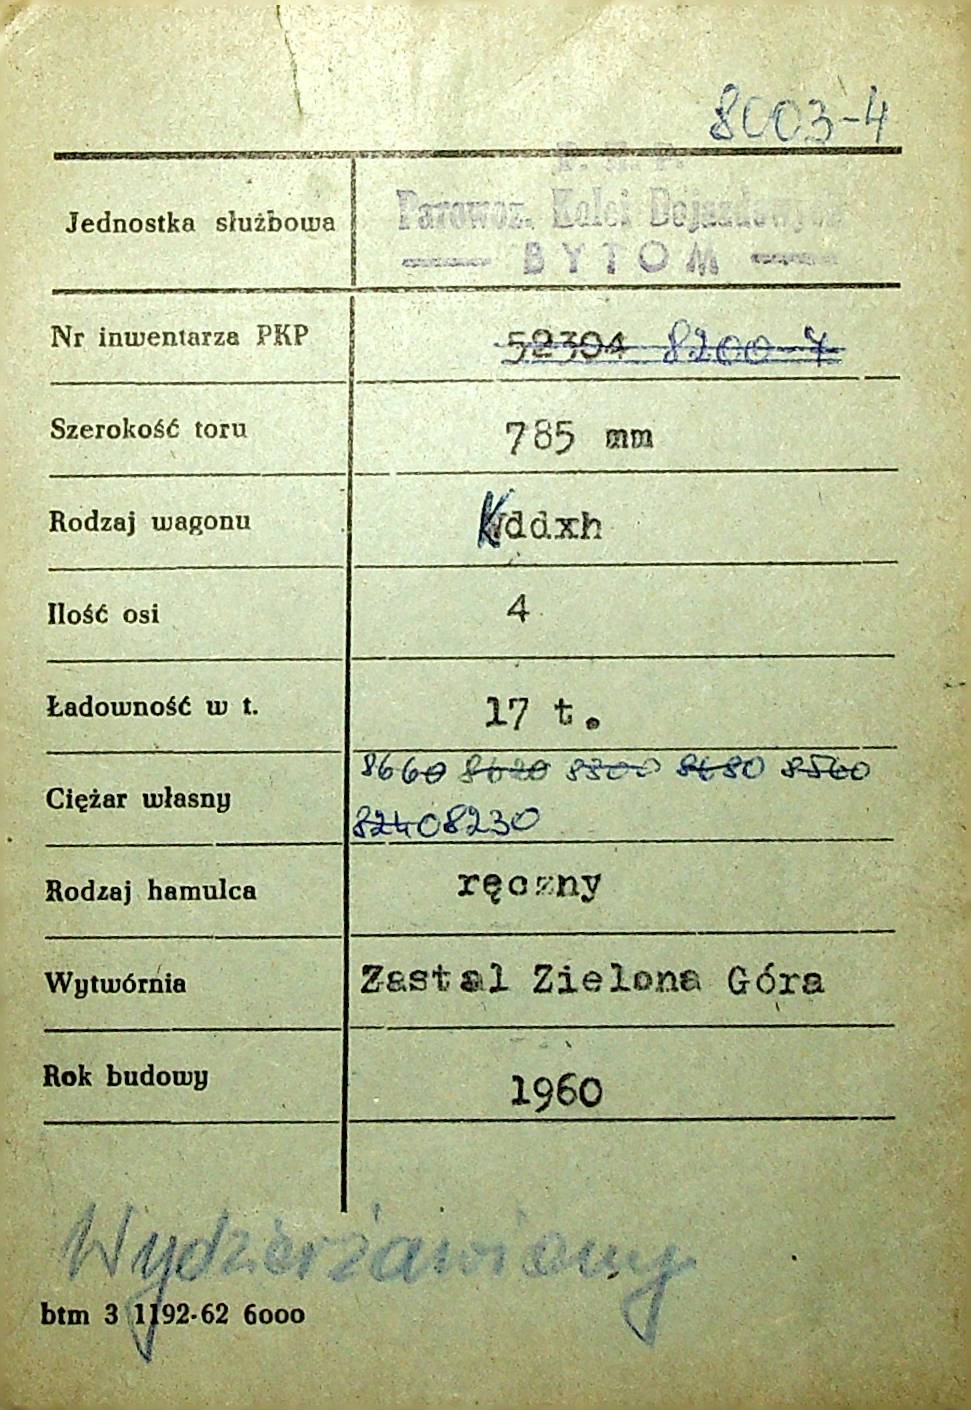 8003-4
P. K. P.
Jednostka służbowa Parowoz. Kolei Dojazdowych
BYTOM
Nr inwentarza PKP 52304 8200-7
Szerokość toru 785 mm
Rodzaj wagonu Kddxh
Ilość osi 4
Ładowność w t. 17 t.
8660 8620 8300 8680 8560
Ciężar własny
8240 8230
Rodzaj hamulca ręczny
Wytwórnia Zastal Zielona Góra
Rok budowy 1960
Wydzierżawiony
btm 3 1192-62 6000